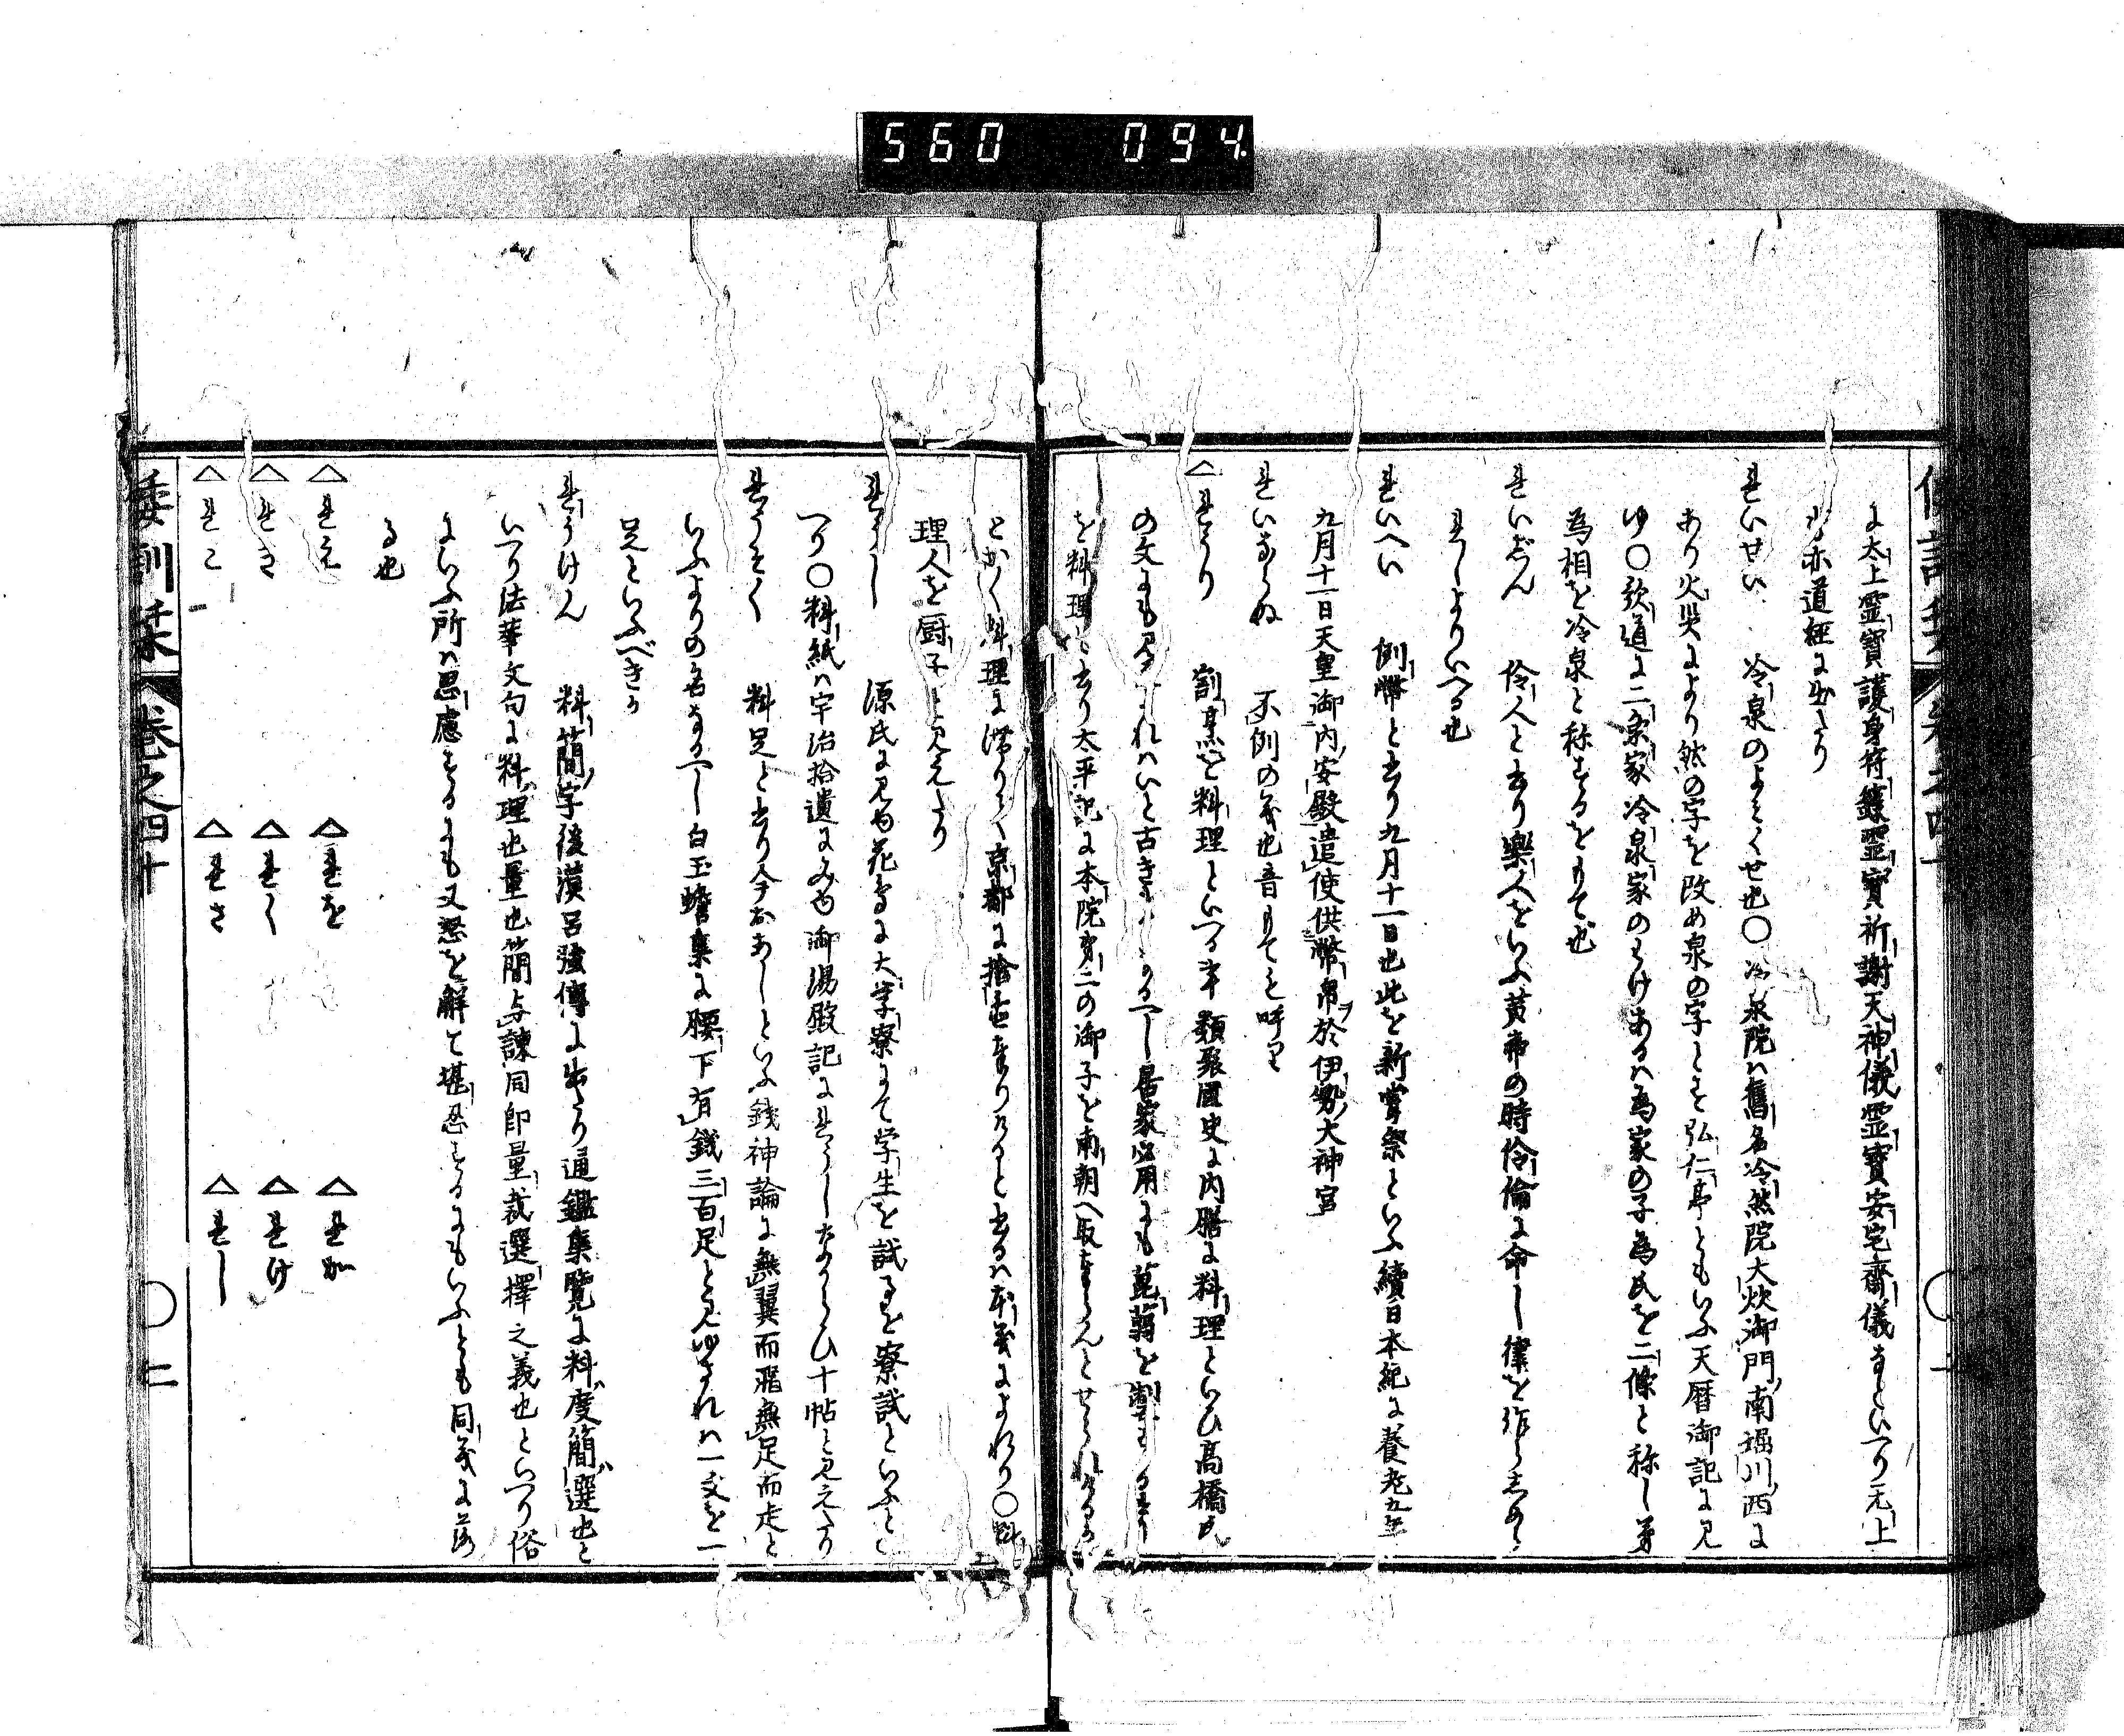 560 094.
に太上霊寳護身符籙霊寳祈謝天神儀霊寳安宅齋儀なといへり无上
赤道経に出たり
れいせい 冷泉のよみくせ也〇冷泉院ハ舊名冷然院大炊御門南堀川西に
あり火災により然の字を改め泉の字とそ弘仁亭ともいふ天暦御記に見
ゆ〇歌道に二条家冷泉家のわけあるハ為家の子為氏を二條と称し弟
為相を冷泉と称するをもて也
れいじん 伶人と書り樂人をいふ黄帝の時伶倫に命し律を作らしめら
れしよりいへる也
れいへい 例幣と書り九月十一日也此を新甞祭といふ續日本紀に養老五年
九月十一日天皇御内安殿遣使供幣帛於伊勢大神宮
れいならぬ 不例の義也音もてと呼り
△れうり 割烹を料理といへる事類聚國史に内膳に料理といひ高橋氏
の文にも見されハいと古き なるへし居家必用にも菎蒻を製する
を料理と書り太平記に本院第二の御子を南朝へ取奉らんとせられけるか
とかく料理に滞りて京都に捨置奉りけると書るハ本義によれり〇料
理人を厨子と見えたり
れうし 源氏に見ゆ花鳥に大学寮にて学生を試るを寮試といふと
へり〇料紙ハ宇治拾遺にみゆ御湯殿記にれうしたかひ十帖と見えたり
れうそく 料足と書り今おあしといふ銭神論に無翼而飛無足而走と
いふよりの名なるへし白玉蟾集に腰下有錢三百足と見ゆされハ一文を一
足といふべきか
れうけん 料簡ノ字後漢呂強傳に出たり通鑑集覧に料度簡選也と
いへり法華文句に料理也量也簡与諌同即量裁選擇之義也といへり俗
にいふ所ハ思慮するにも又怒を解と堪忍するにもいふとも同義に落
る也
△れえ △れを △れか
△れき △れく △れけ
△れこ △れさ △れし
倭訓栞 巻之四十 〇 二